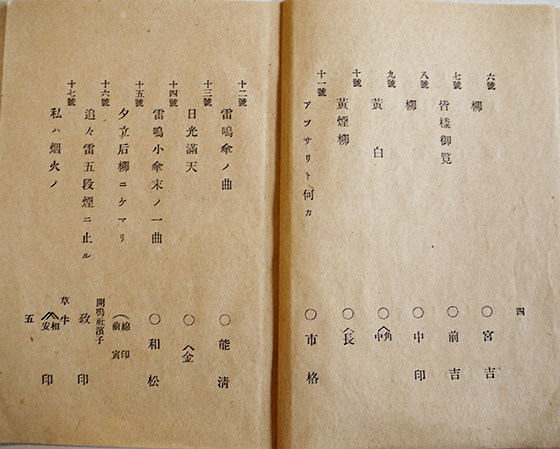 四
六號 柳 ○宮吉
七號 皆樣御覧 ○前吉
八號 柳 ○中印
九號 黃白 ○角中
十號 黃煙柳 ○長
十一號 アツサリト何カ ○市格
十二號 雷鳴傘ノ曲 ○能清
十三號 日光滿天 ○金
十四號 雷鳴小傘末ノ一曲 ○和松
十五號 夕立后柳ニケマリ 綿印 前寅
十六號 追々雷五段煙ニ止ル 開鳴社濱子 政印
十七號 私ハ烟火ノ 草牛 相安印
五